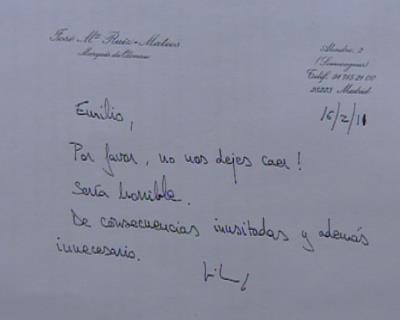 José Mª Ruiz-Mateos
Marqués de Olivara
Alondra, 2
(Somosaguas)
Teléf. 91 715 21 00
28223 Madrid
16/2/11
Emilio,
Por favor, no nos dejes caer!
Sería horrible.
De consecuencias inusitadas y además
innecesario.